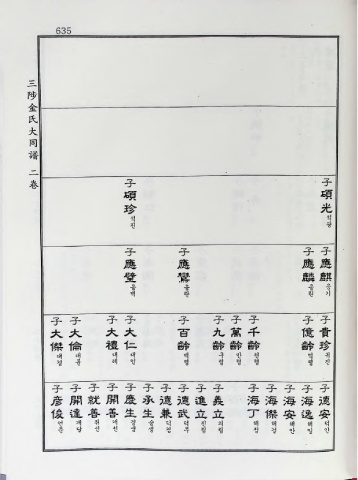 635
三陟金氏大同譜 二卷
子碩光석광
子碩珍석진
子應麒응기
子應麟응린
子應鸞응란
子應璧응벽
子貴珍귀진
子億齡억령
子千齡천령
子萬齡만령
子九齡구령
子百齡백령
子大仁대인
子大禮대례
子大倫대륜
子大傑대걸
子德安덕안
子海逸해일
子海安해안
子海傑해걸
子海丁해정
子義立의립
子進立진립
子德武덕무
子德兼덕겸
子承生승생
子慶生경생
子開善개선
子就善취선
子開達개달
子彦俊언준